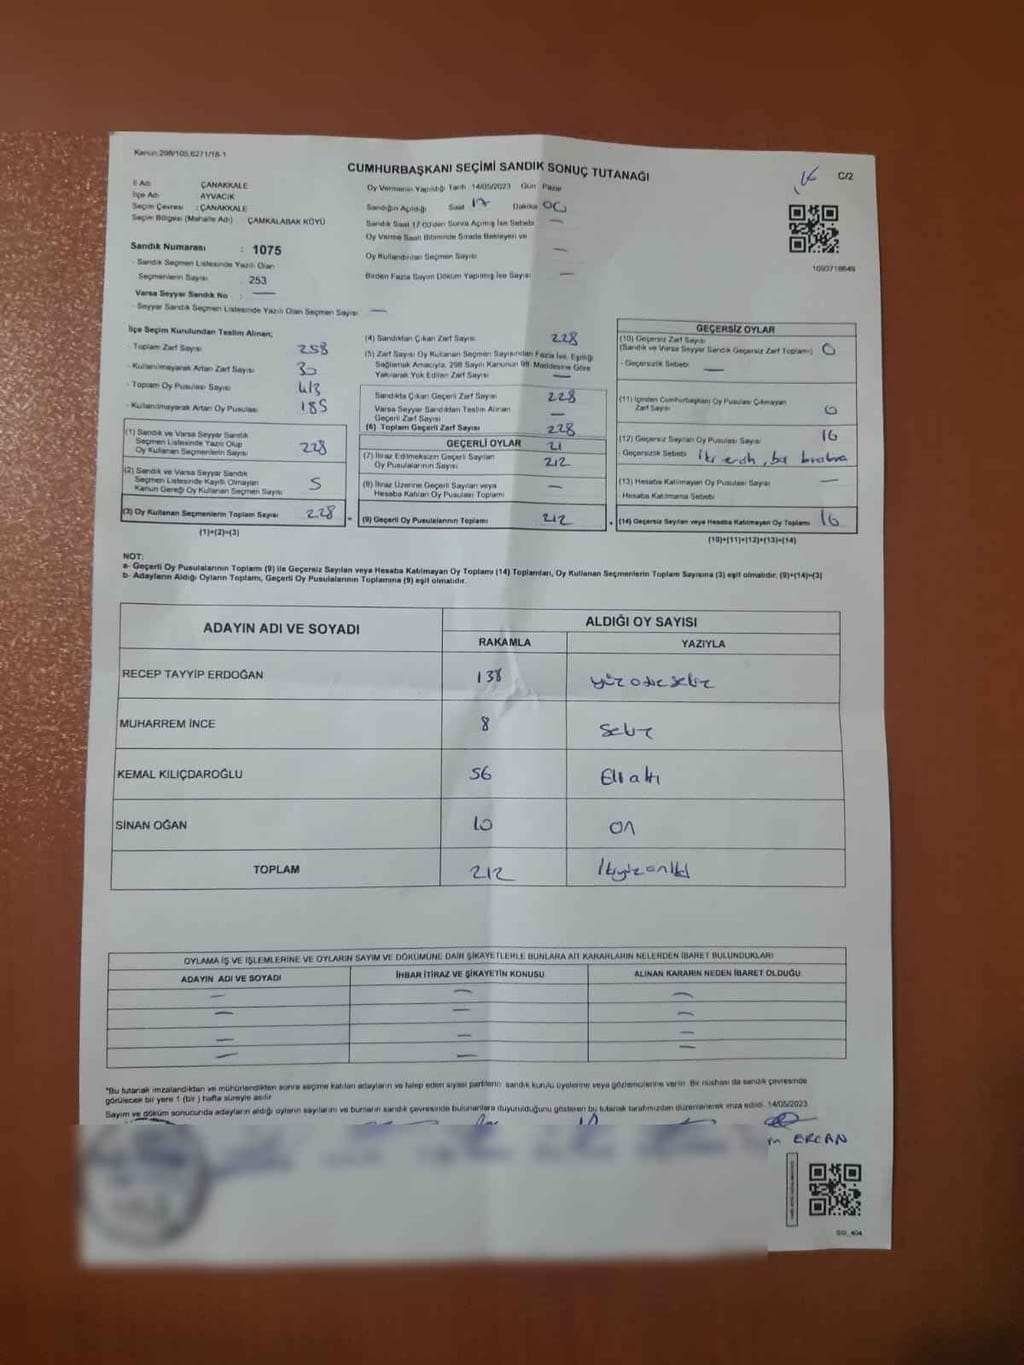 Kanun:298/105,6271/18-1
CUMHURBAŞKANI SEÇİMİ SANDIK SONUÇ TUTANAĞI
C/2
İl Adı : ÇANAKKALE
İlçe Adı : AYVACIK
Seçim Çevresi : ÇANAKKALE
Seçim Bölgesi (Mahalle Adı) ÇAMKALABAK KÖYÜ
Oy Vermenin Yapıldığı Tarih 14/05/2023 Gün Pazar
Sandığın Açıldığı Saat 17 Dakika 00
Sandık Saat 17:00'den Sonra Açılmış İse Sebebi —
Oy Verme Saati Bitiminde Sırada Bekleyen ve
Oy Kullandırılan Seçmen Sayısı —
Birden Fazla Sayım Döküm Yapılmış İse Sayısı —
1093718649
Sandık Numarası : 1075
- Sandık Seçmen Listesinde Yazılı Olan
Seçmenlerin Sayısı 253
Varsa Seyyar Sandık No : —
- Seyyar Sandık Seçmen Listesinde Yazılı Olan Seçmen Sayısı —
İlçe Seçim Kurulundan Teslim Alınan;
- Toplam Zarf Sayısı 258
- Kullanılmayarak Artan Zarf Sayısı 30
- Toplam Oy Pusulası Sayısı 413
- Kullanılmayarak Artan Oy Pusulası 185
(1) Sandık ve Varsa Seyyar Sandık
Seçmen Listesinde Yazılı Olup
Oy Kullanan Seçmenlerin Sayısı 228
(2) Sandık ve Varsa Seyyar Sandık
Seçmen Listesinde Kayıtlı Olmayan
Kanun Gereği Oy Kullanan Seçmen Sayısı 5
(3) Oy Kullanan Seçmenlerin Toplam Sayısı 228
(1)+(2)=(3)
(4) Sandıktan Çıkan Zarf Sayısı 228
(5) Zarf Sayısı Oy Kullanan Seçmen Sayısından Fazla İse, Eşitliği
Sağlamak Amacıyla, 298 Sayılı Kanunun 98. Maddesine Göre
Yakılarak Yok Edilen Zarf Sayısı —
Sandıkta Çıkan Geçerli Zarf Sayısı 228
Varsa Seyyar Sandıktan Teslim Alınan
Geçerli Zarf Sayısı —
(6) Toplam Geçerli Zarf Sayısı 228
GEÇERLİ OYLAR 21
(7) İtiraz Edilmeksizin Geçerli Sayılan
Oy Pusulalarının Sayısı 212
(8) İtiraz Üzerine Geçerli Sayılan veya
Hesaba Katılan Oy Pusulası Toplamı —
(9) Geçerli Oy Pusulalarının Toplamı 212
GEÇERSİZ OYLAR
(10) Geçersiz Zarf Sayısı
(Sandık ve Varsa Seyyar Sandık Geçersiz Zarf Toplamı) 0
- Geçersizlik Sebebi —
(11) İçinden Cumhurbaşkanı Oy Pusulası Çıkmayan
Zarf Sayısı 0
(12) Geçersiz Sayılan Oy Pusulası Sayısı 16
- Geçersizlik Sebebi
(13) Hesaba Katılmayan Oy Pusulası Sayısı —
Hesaba Katılmama Sebebi
(14) Geçersiz Sayılan veya Hesaba Katılmayan Oy Toplamı 16
(10)+(11)+(12)+(13)=(14)
NOT:
a- Geçerli Oy Pusulalarının Toplamı (9) ile Geçersiz Sayılan veya Hesaba Katılmayan Oy Toplamı (14) Toplamları, Oy Kullanan Seçmenlerin Toplam Sayısına (3) eşit olmalıdır. (9)+(14)=(3)
b- Adayların Aldığı Oyların Toplamı, Geçerli Oy Pusulalarının Toplamına (9) eşit olmalıdır.
ADAYIN ADI VE SOYADI ALDIĞI OY SAYISI
RAKAMLA YAZIYLA
RECEP TAYYİP ERDOĞAN 138 yüzotuzsekiz
MUHARREM İNCE 8 Sekiz
KEMAL KILIÇDAROĞLU 56 Elli altı
SİNAN OĞAN 10 on
TOPLAM 212 İkiyüzoniki
OYLAMA İŞ VE İŞLEMLERİNE VE OYLARIN SAYIM VE DÖKÜMÜNE DAİR ŞİKAYETLERLE BUNLARA AİT KARARLARIN NELERDEN İBARET BULUNDUKLARI
ADAYIN ADI VE SOYADI İHBAR İTİRAZ VE ŞİKAYETİN KONUSU ALINAN KARARIN NEDEN İBARET OLDUĞU
— — —
— — —
— — —
— — —
*Bu tutanak imzalandıktan ve mühürlendikten sonra seçime katılan adayların ve talep eden siyasi partilerin sandık kurulu üyelerine veya gözlemcilerine verilir. Bir nüshası da sandık çevresinde
görülecek bir yere 1 (bir) hafta süreyle asılır.
Sayım ve döküm sonucunda adayların aldığı oyların sayılarını ve bunların sandık çevresinde bulunanlara duyurulduğunu gösteren bu tutanak tarafımızdan düzenlenerek imza edildi. 14/05/2023
ERCAN